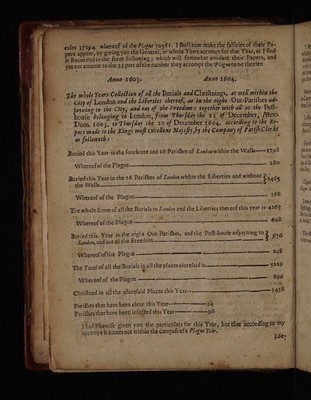 eases 37294. whereof of the Plague 30561. I shall now make the falsities of these Pa-
pers appear, by giving you the General, or whole Years accompt for that Year, as I find
it Recorded in the form following; which will somewhat amidate their Papers, and
yet not amount to the part of the number they accompt the Plague to be therein
Anno 1603. Anno 1604.
The whole Years Collection of all the Burials and Christnings, as well within the
City of London and the Liberties thereof, as in the eight Out-Parishes ad-
joyning to the City, and out of the Freedom: together with all at the Pest-
house belonging to London, from Thursday the of December, Anno
Dom. 1603. to Thursday the 20 of December 1604. according to the Re-
port made to the Kings most excellent Majesty, by the Company of Parish Clerks
as followeth:
Buried this Year in the fourscore and 16 Parishes of London within the Walls— 1798
Whereof of the Plague— 280
Buried this Year in the 16 Parishes of London within the Liberties and without
the Walls— 2465
Whereof of the Plague— 368
The whole summ of all the Burials in London and the Liberties thereof this year is 4263
Whereof of the Plague— 648
Buried this Year in the eight Out-Parishes, and the Pest-house adjoyning to
London, and out of the Freedom— 956
Whereof of the Plague— 248
The Total of all the Burials in all the places aforesaid is— 5219
Whereof of the Plague— 896
Christned in all the aforesaid Places this Year— 5458
Parishes that have been clear this Year—
Parishes that have been infected this Year—
I had likewise given you the particulars for this Year, but that according to my
accompt it comes not within the compass of a Plague Year.